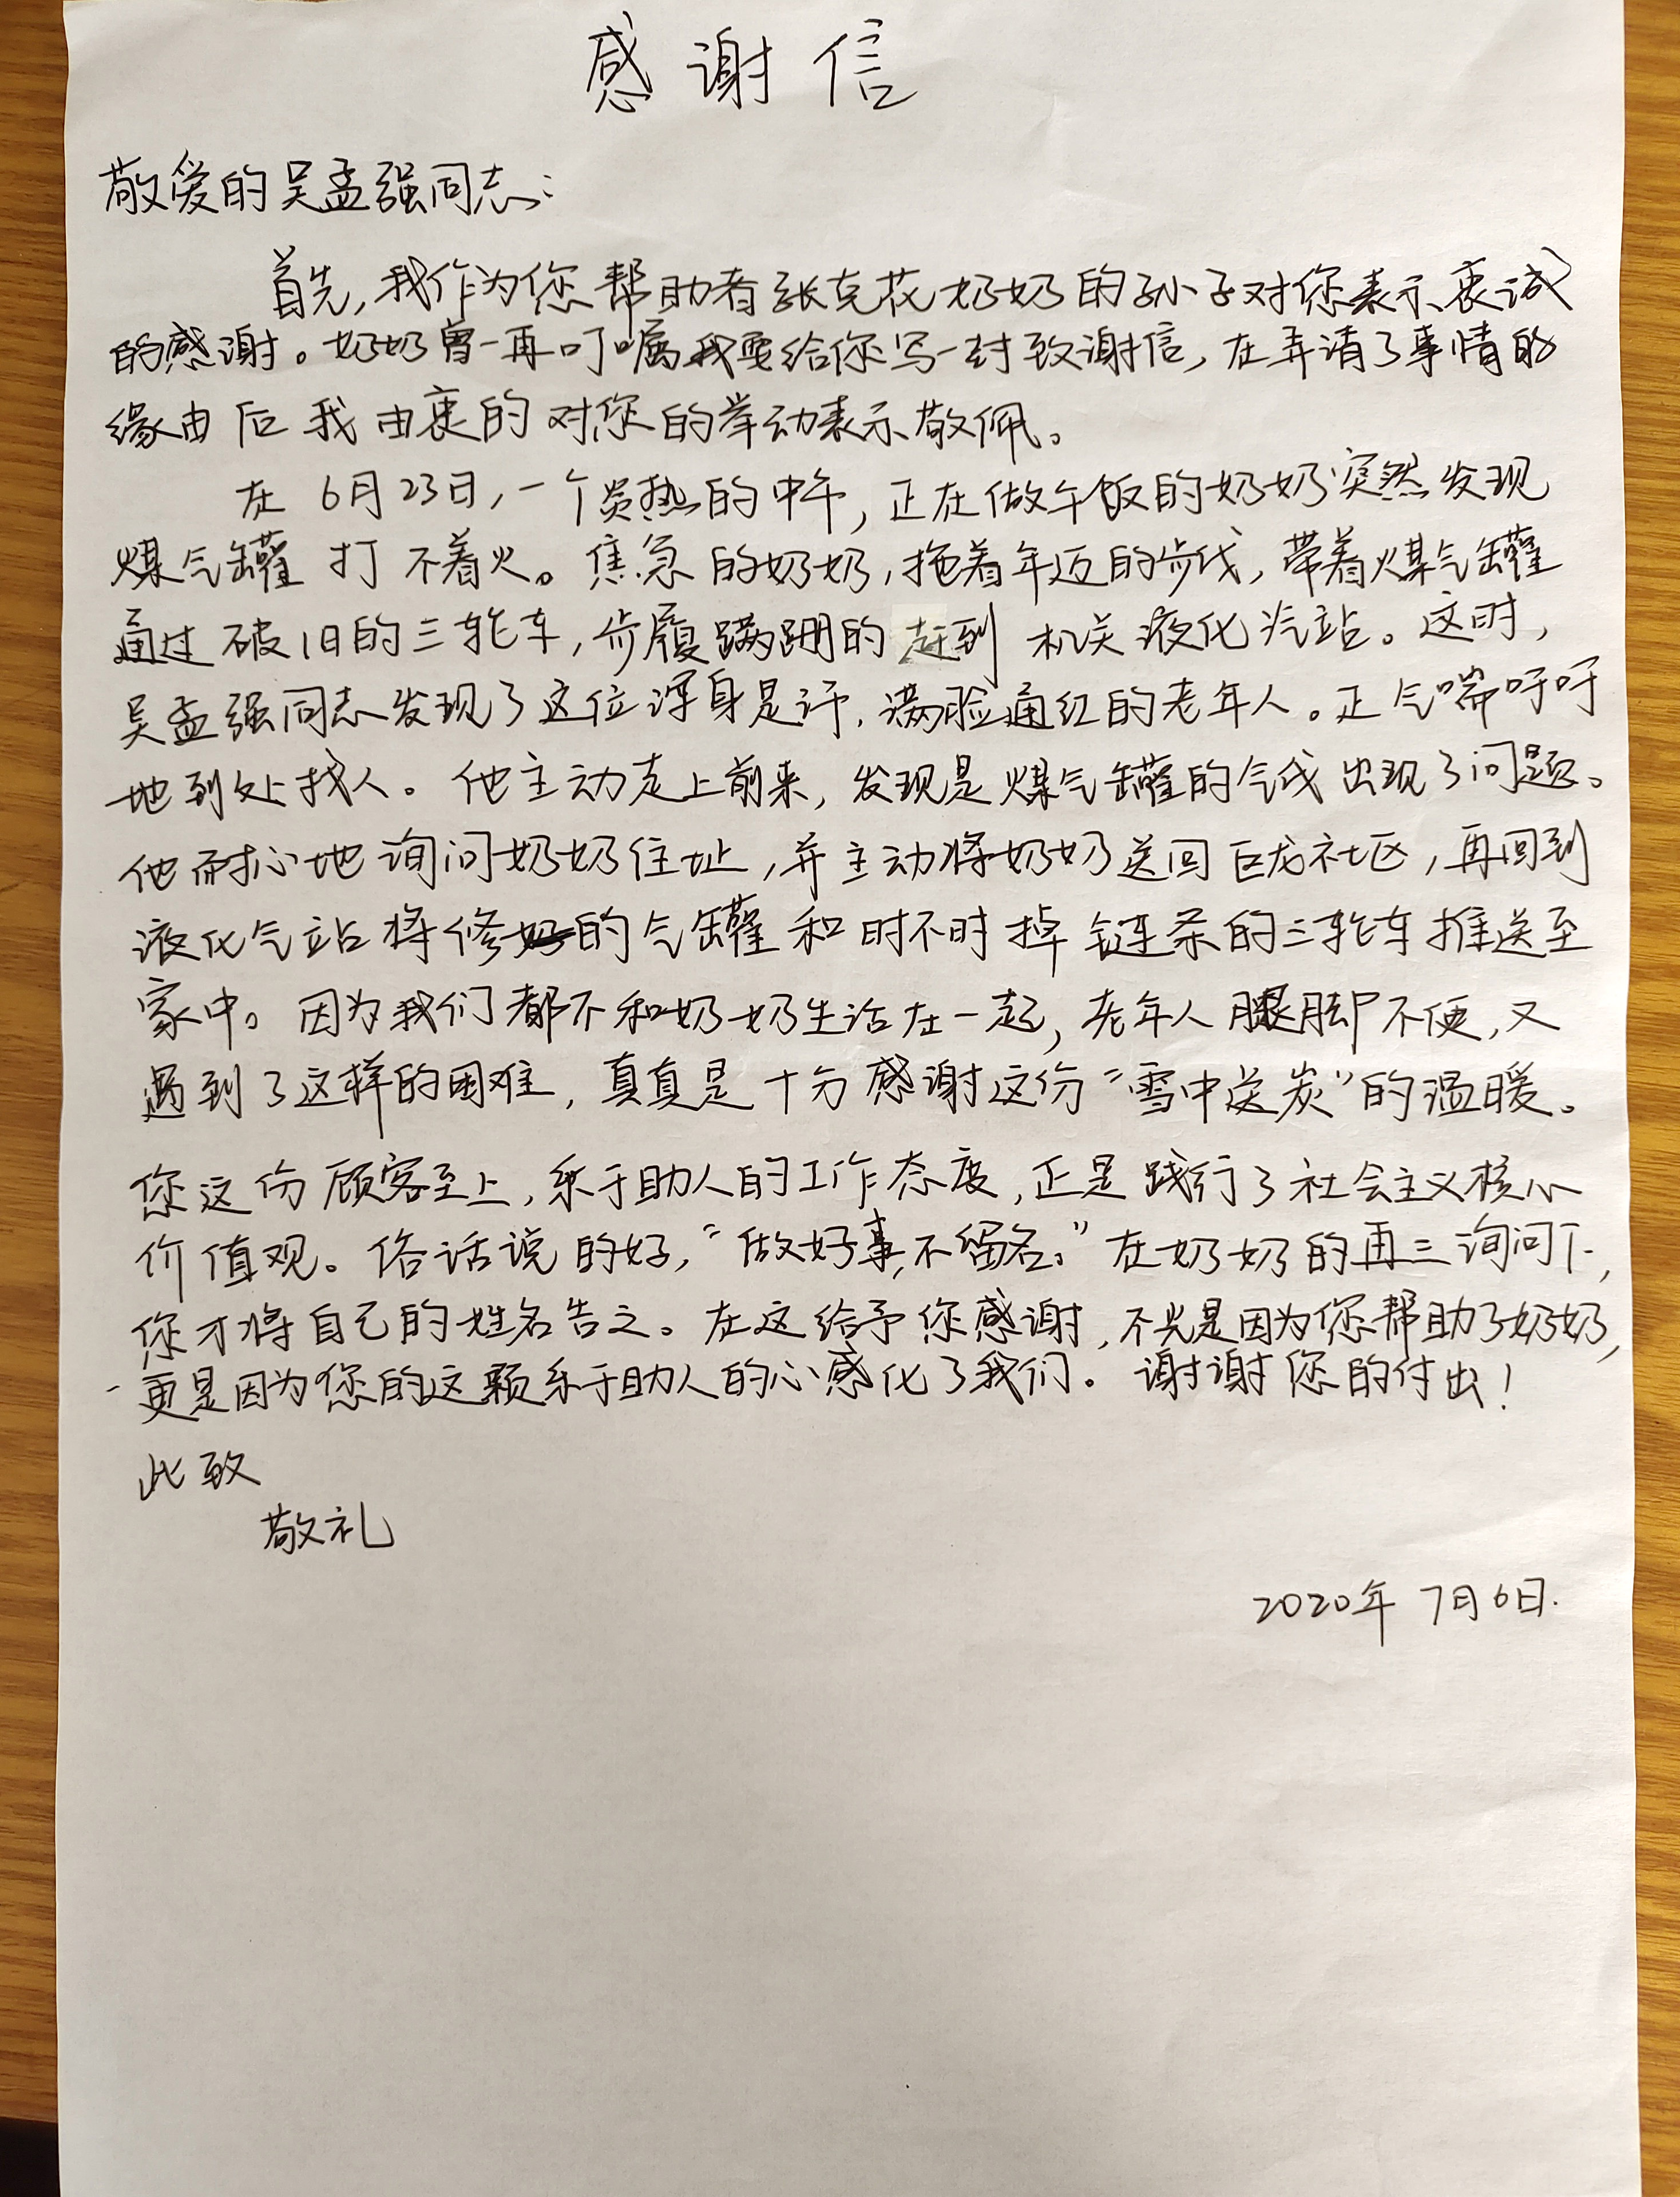 感谢信
敬爱的吴孟强同志:
首先,我作为您帮助者张克花奶奶的孙子对您表示衷诚
的感谢。奶奶曾一再叮嘱我要给您写一封致谢信,在弄清了事情的
缘由后我由衷的对您的举动表示敬佩。
在6月23日,一个炎热的中午,正在做午饭的奶奶突然发现
煤气罐打不着火。焦急的奶奶,拖着年迈的步伐,带着煤气罐
通过破旧的三轮车,步履蹒跚的赶到机关液化汽站。这时,
吴孟强同志发现了这位浑身是汗,满脸通红的老年人。正气喘吁吁
地到处找人。他主动走上前来,发现是煤气罐的气线出现了问题。
他耐心地询问奶奶住址,并主动将奶奶送回巨龙社区,再回到
液化气站将修好的气罐和时不时掉链条的三轮车推送至
家中。因为我们都不和奶奶生活在一起,老年人腿脚不便,又
遇到了这样的困难,真真是十分感谢这份“雪中送炭”的温暖。
您这份顾客至上,乐于助人的工作态度,正是践行了社会主义核心
价值观。俗话说的好,“做好事,不留名。”在奶奶的再三询问下,
您才将自己的姓名告之。在这给予您感谢,不光是因为您帮助了奶奶,
更是因为您的这颗乐于助人的心感化了我们。谢谢您的付出!
此致
敬礼
2020年7月6日.